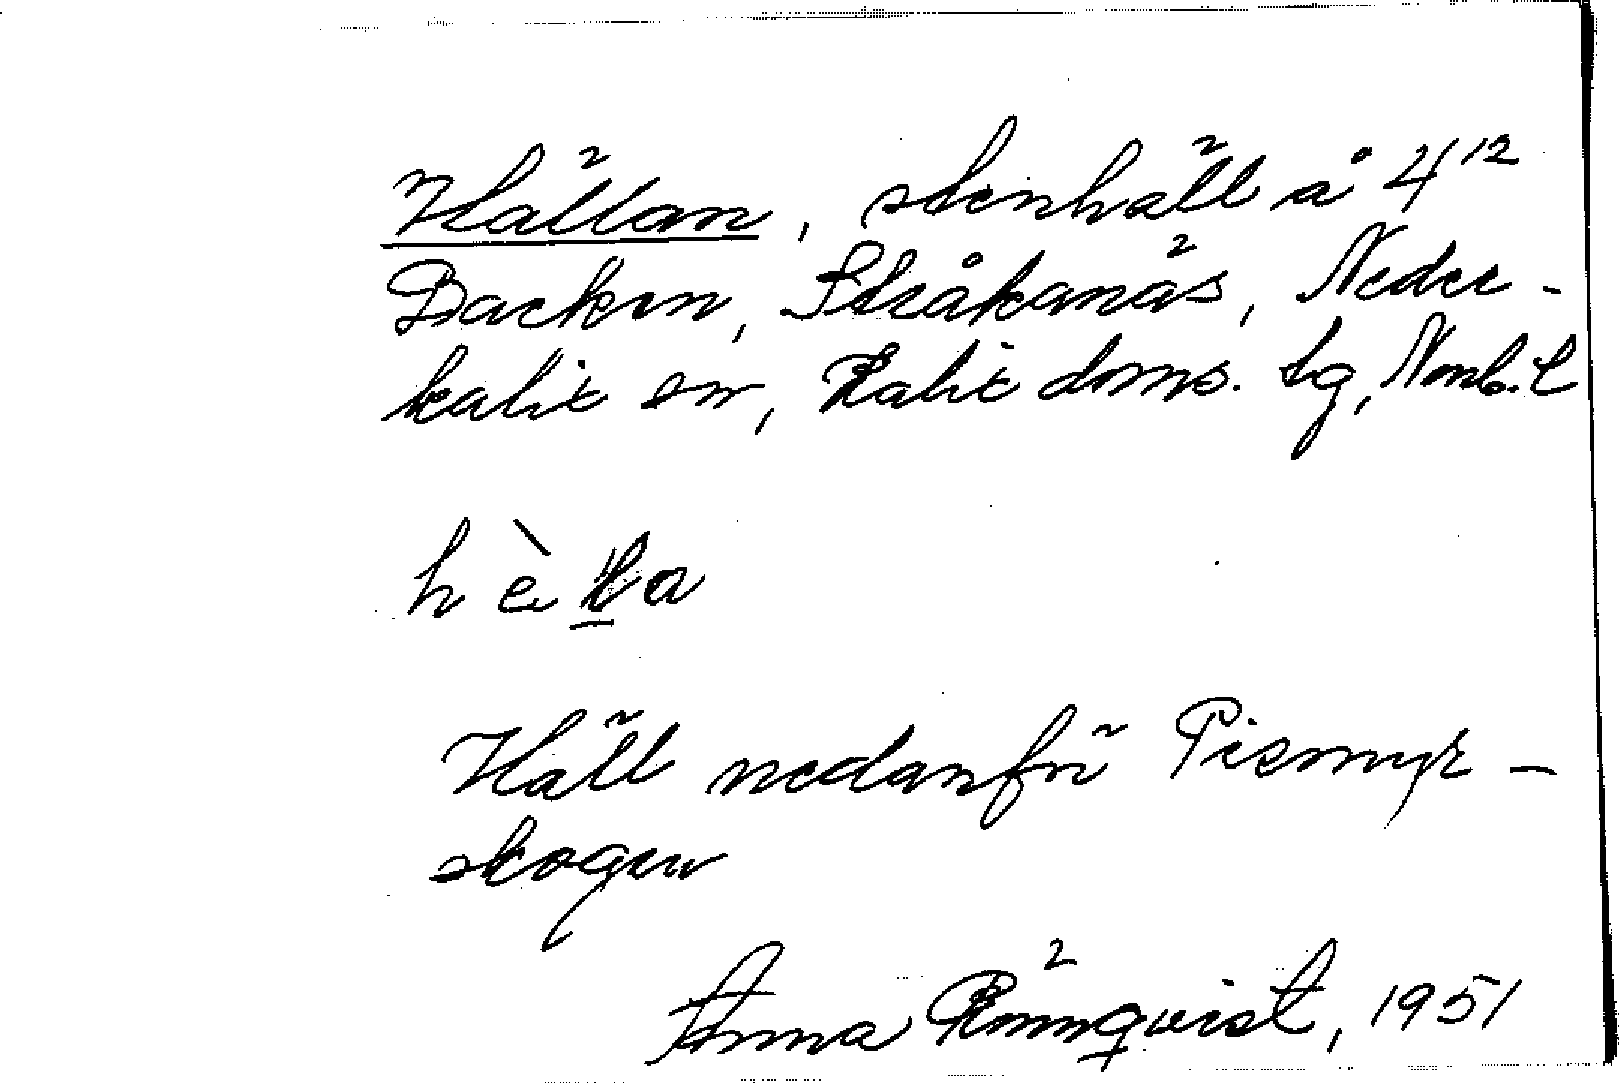 Hällan, stenhäll å 4¹²
Backen, Stråkanäs, Neder-
kalix sn, Kalix doms. lg, Norrb. l
hèlla
Häll nedanför Pismyr-
skogen
Anna Rönnqvist, 1951